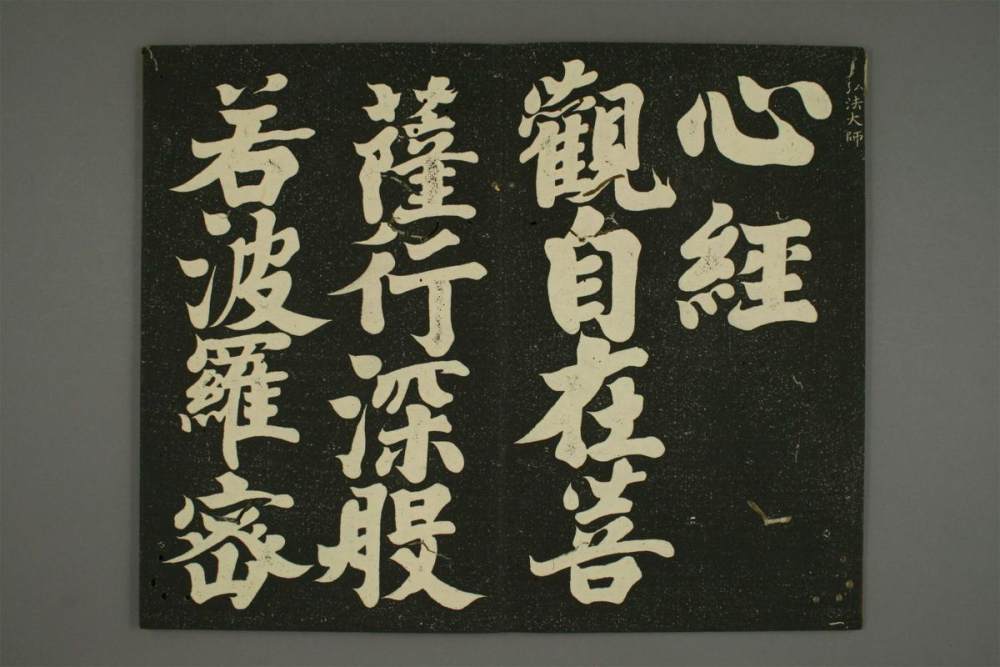 弘法大師
心經
觀自在菩
薩行深股
若波羅密
一